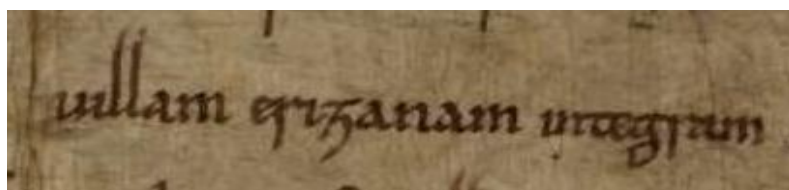 uillam erizanam integram